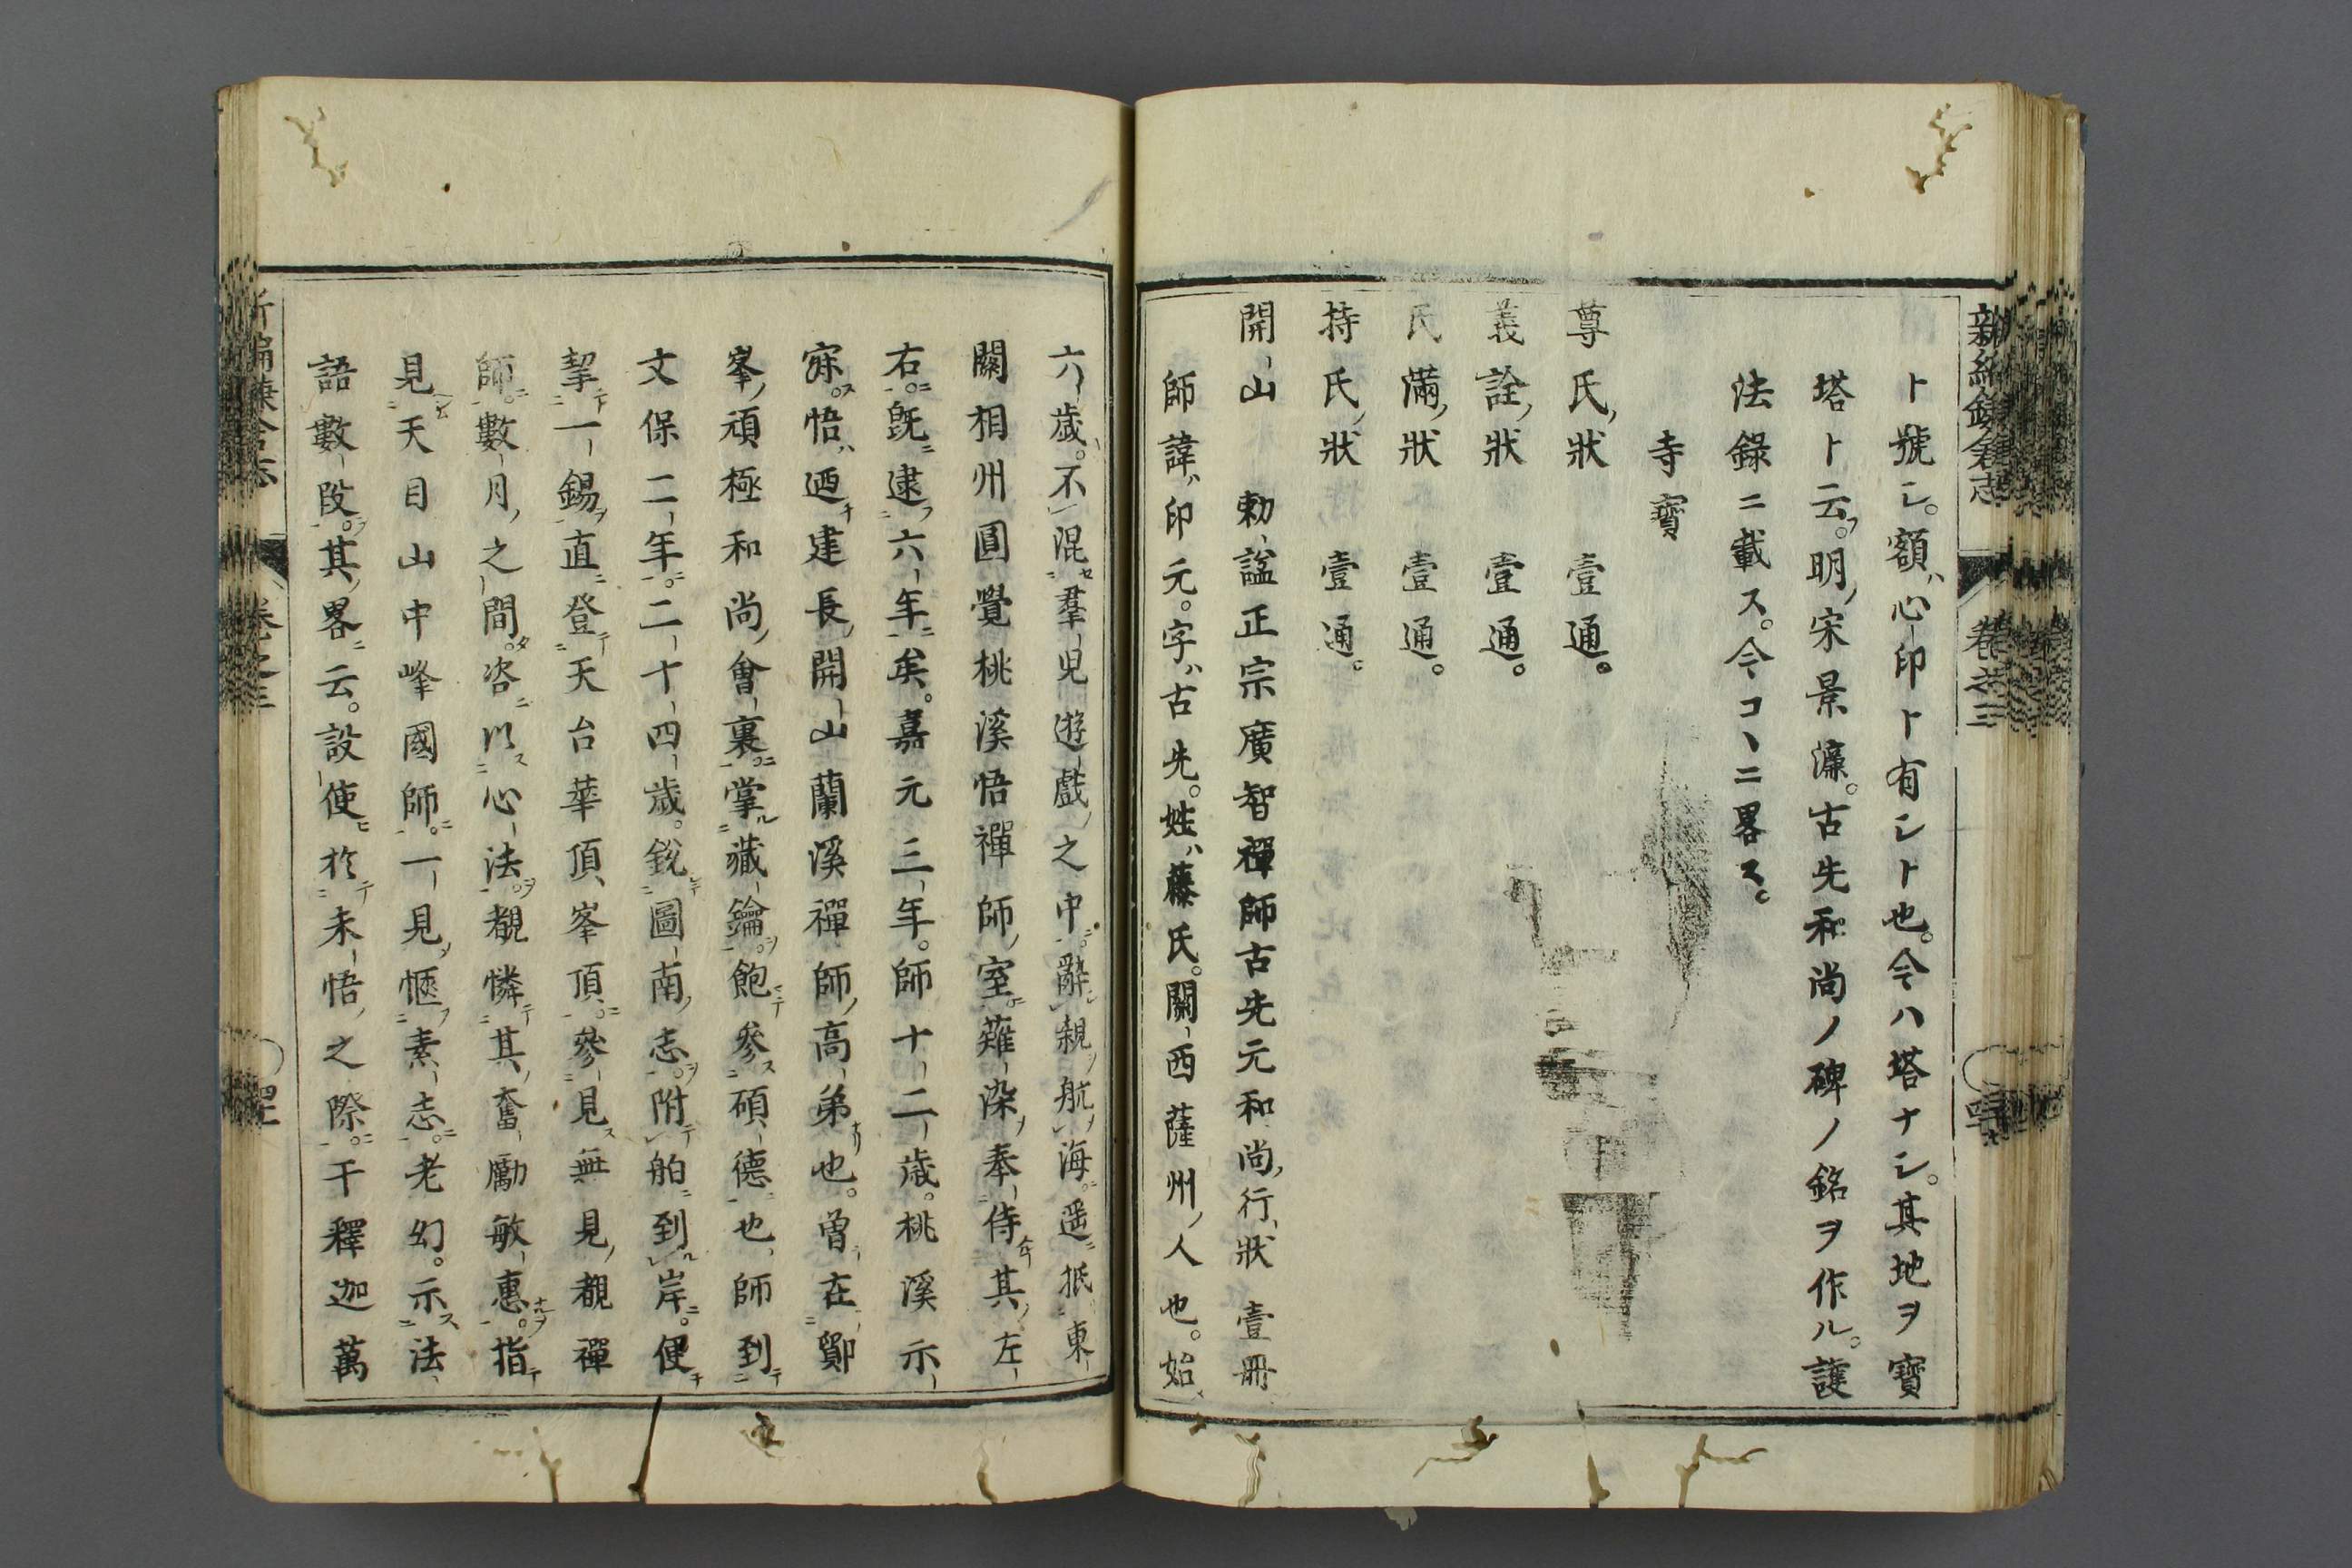 新編鎌倉志 卷之三
ト號シ。額ハ心印ト有シト也。今ハ塔ナシ。其地ヲ寶
塔ト云フ。明ノ宋景濂。古先和尚ノ碑ノ銘ヲ作ル。護
法錄ニ載ス。今コヽニ畧ス。
寺寶
尊氏ノ狀 壹通。
義詮ノ狀 壹通。
氏滿ノ狀 壹通。
持氏ノ狀 壹通。
開山 勅諡正宗廣智禪師古先元和尚ノ行狀 壹冊
師諱ハ印元。字ハ古先。姓ハ藤氏。關西薩州ノ人也。始
六歳。不混羣兒遊戲之中。辭親航海。遥抵東
關相州圓覺桃溪悟禪師ノ室。薙染奉侍其左
右。既逮六年矣。嘉元三年。師十二歳。桃溪示
寂。悟ハ迺建長開山蘭溪禪師ノ高弟也。曽在鄮
峯ノ頑極和尚ノ會裏。掌藏鑰。飽參碩德也。師到
文保二年。二十四歳。銳圖南ノ志。附舶到岸。便
挈一錫。直登天台華頂峯頂。參見無見覩禪
師。數月之間。咨以心法。覩憐其奮勵敏惠。指
見天目山中峰國師。一見愜素志。老幻。示法
語數段。其畧云。設使於未悟之際。干釋迦萬
新編鎌倉志 卷之三